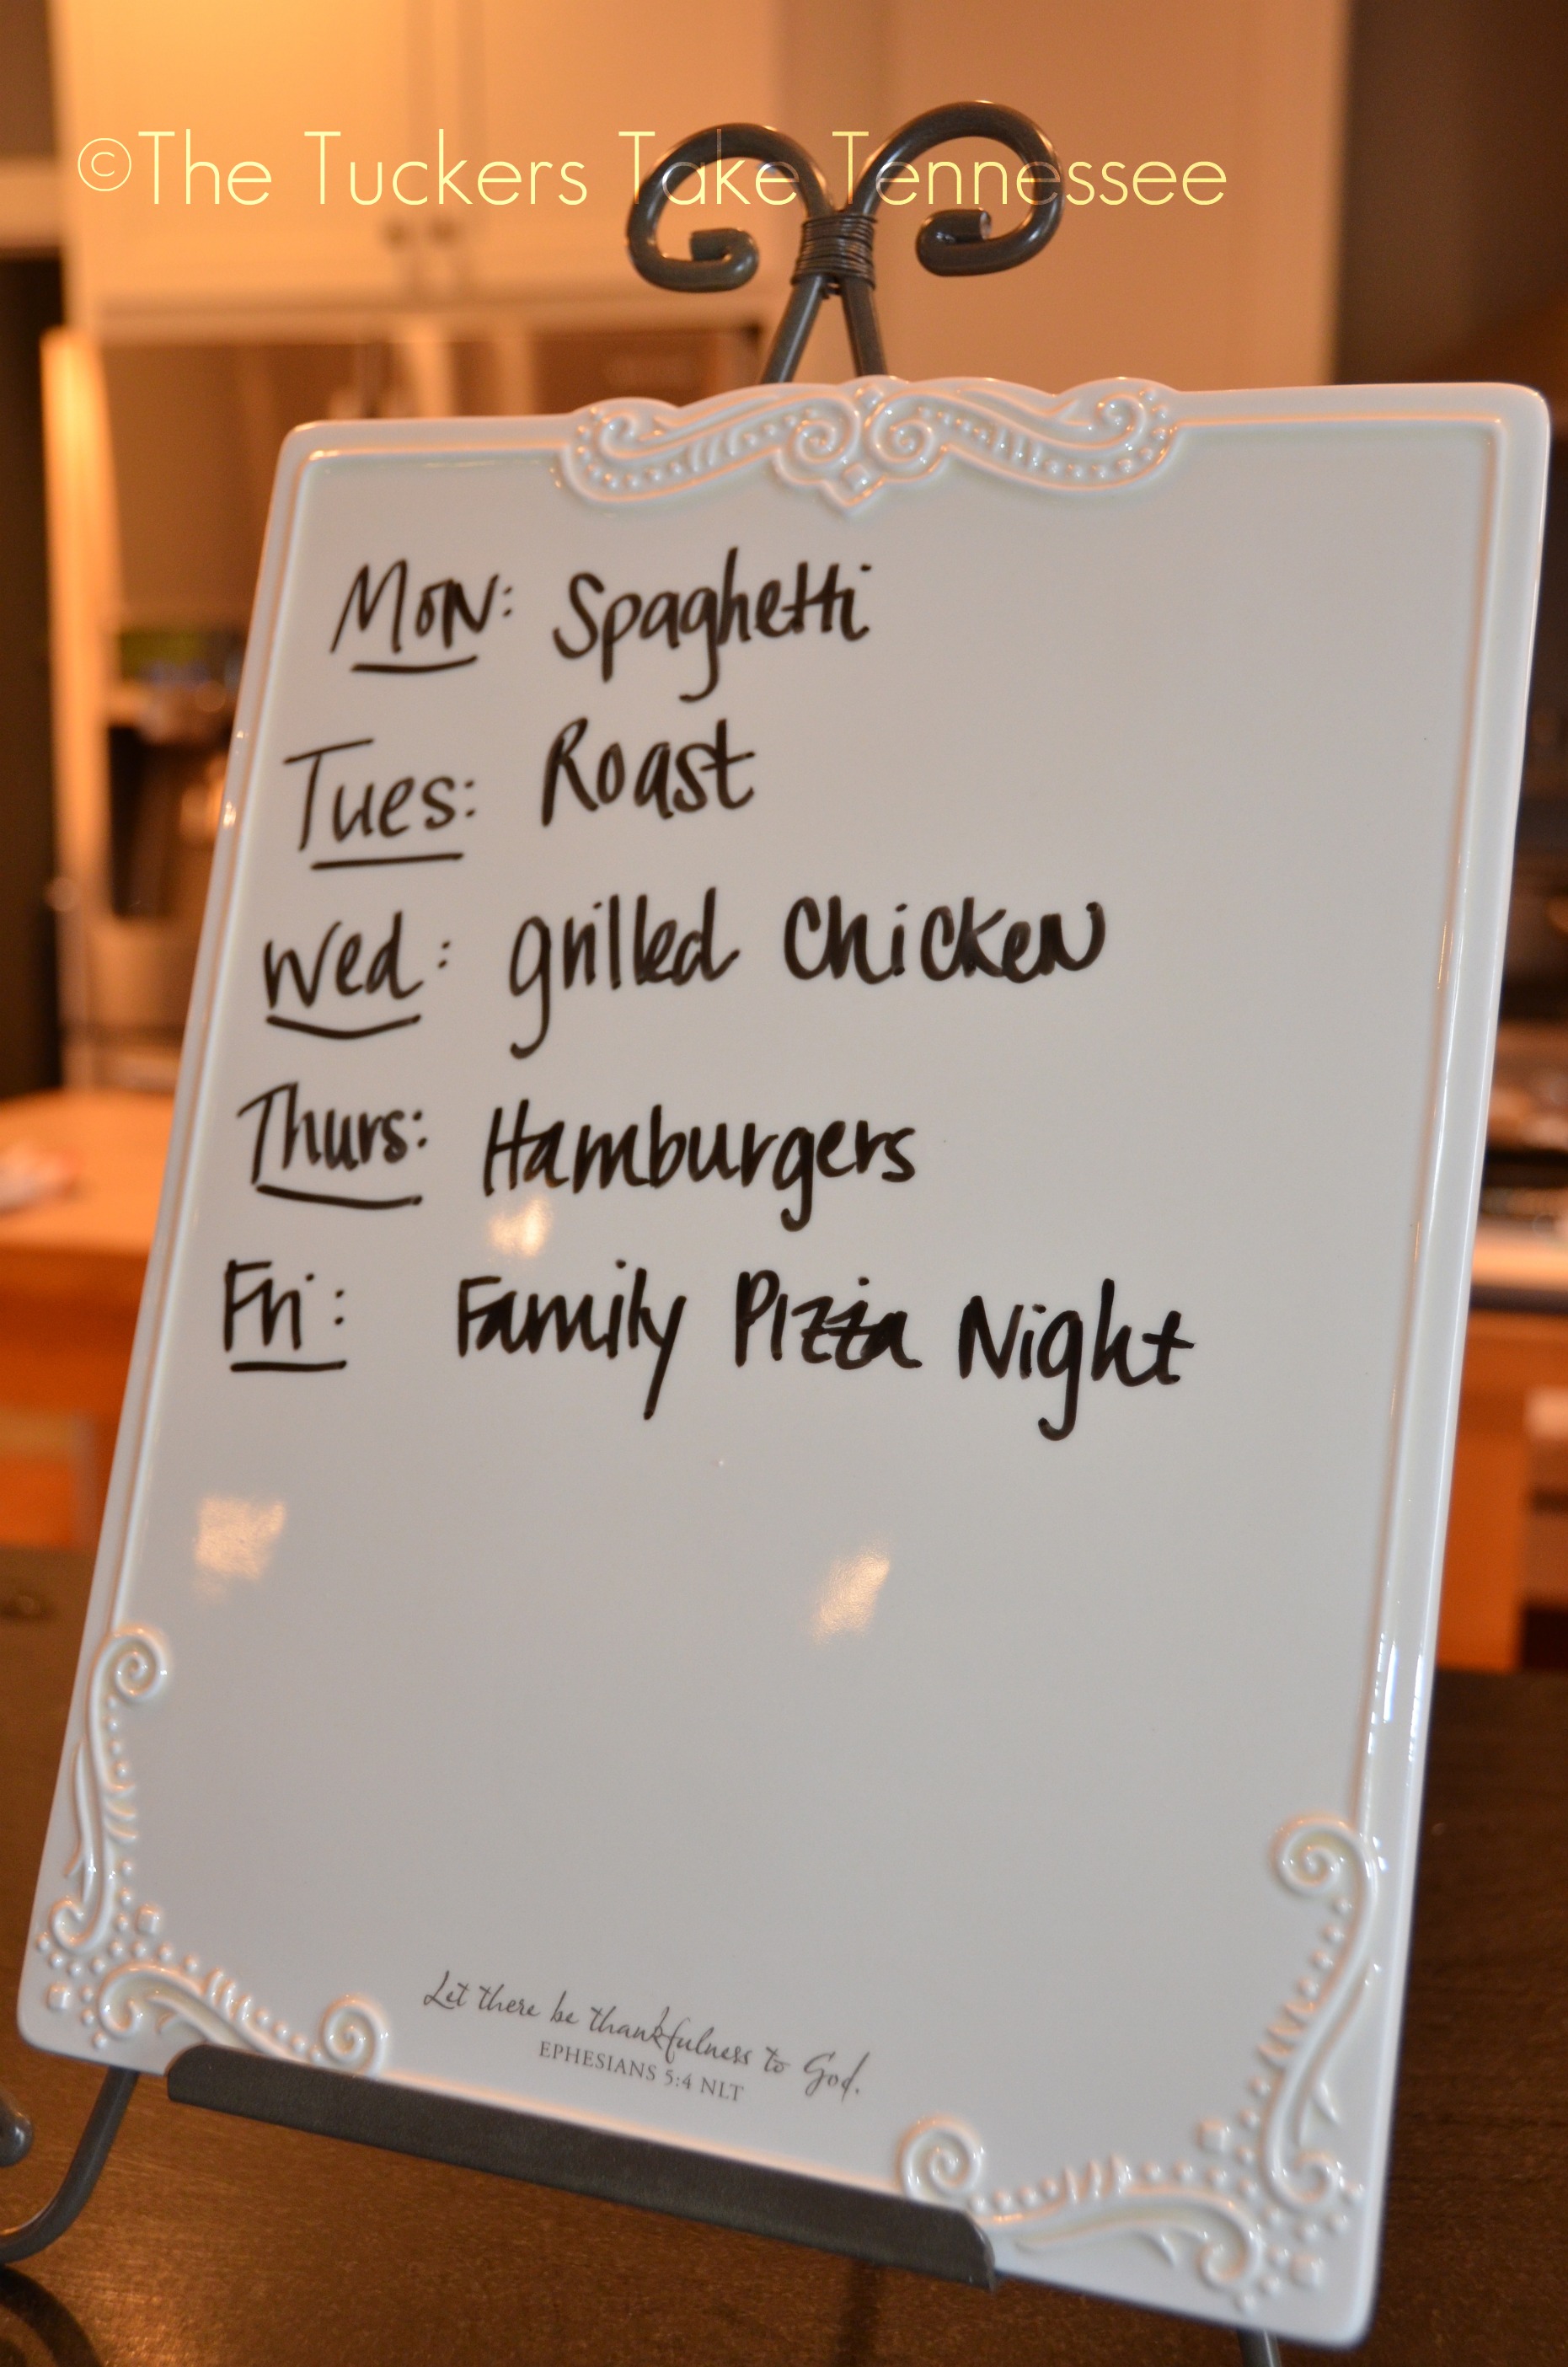 ©The Tuckers Take Tennessee
Mon: Spaghetti
Tues: Roast
Wed: grilled Chicken
Thurs: Hamburgers
Fri: Family Pizza Night
Let there be thankfulness to God.
EPHESIANS 5:4 NLT